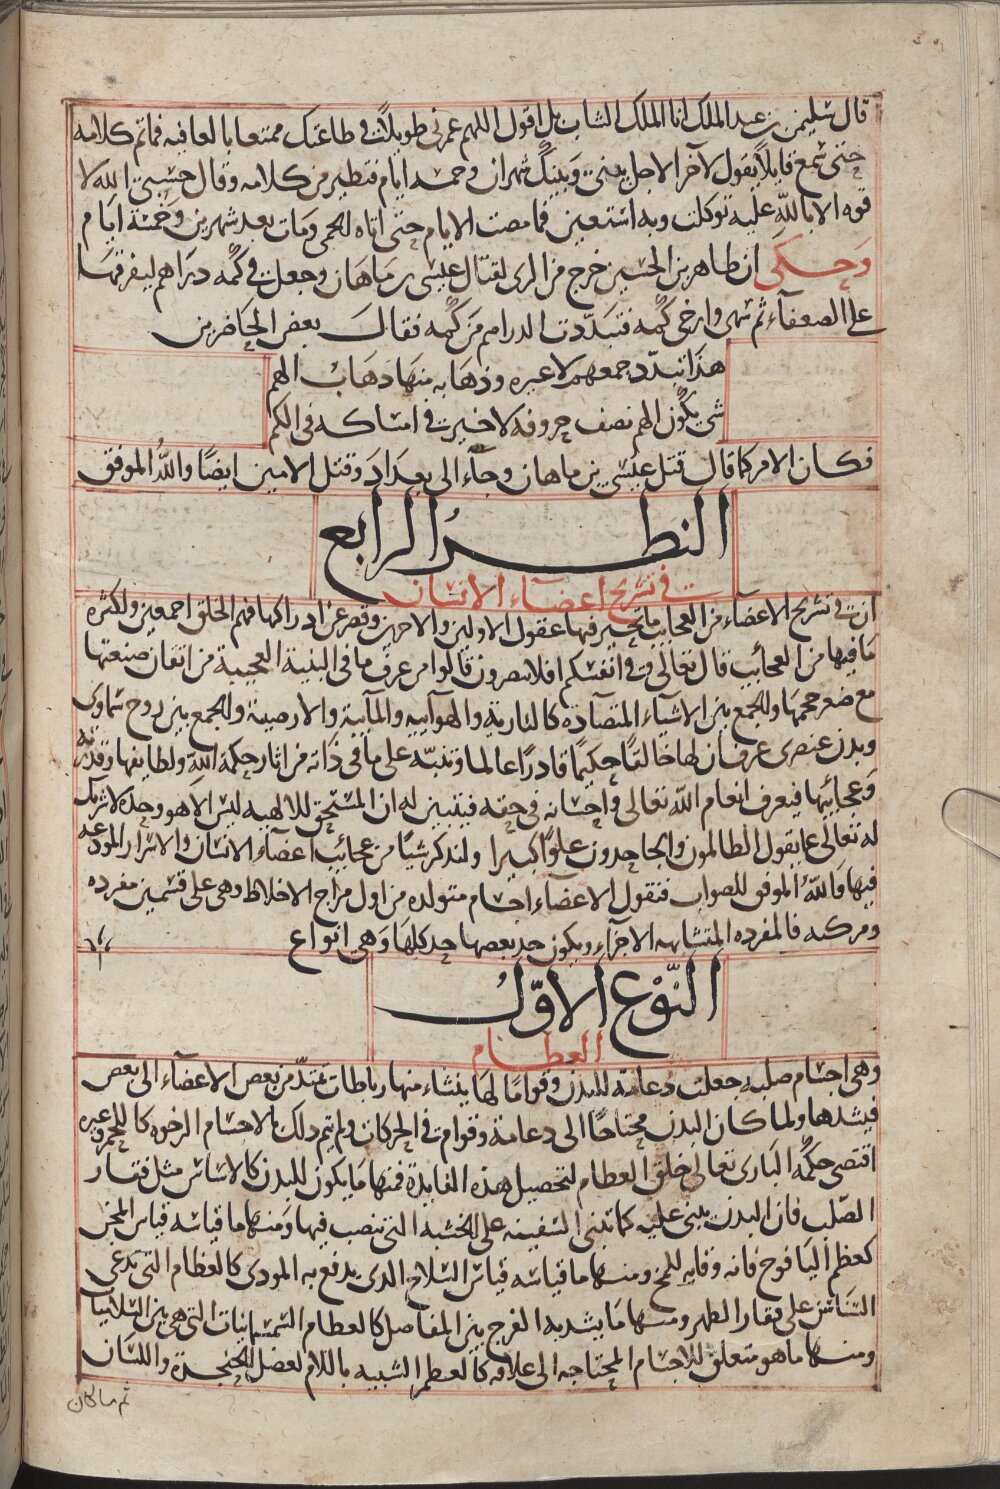 قال سليمن بن عبد الملك انا الملك الشاب بل اقول اللهم عمرني طويلا في طاعتك ممتعا بالعافيه فما تم كلامه
حتى سمع قايلا يقول لآخر الاجل بيني وبينك شهران وخمسه ايام فتطير من كلامه وقال حسبي الله لا
قوه الا بالله عليه توكلت وبه استعين فما مضت الايام حتى اتاه الحمى ومات بعد شهرين وخمسة ايام
وحكى ان طاهر بن الحسين خرج من الرى لقتال عيسى بن ماهان وجعل في كمه دراهم ليفرقها
على الضعفاء ثم سهى وارخى كمه فتبددت الدراهم من كمه فقال بعض الحاضرين
هذا تبدد جمعهم لا غيره وذهابه منها ذهاب الهم
شى يكون الهم نصف حروفه لا خير في امساكه في الكم
فكان الامر كما قال قتل عيسى بن ماهان وجاء الى بغداد وقتل الامين ايضًا والله الموفق
النظر الرابع
في تشريح اعضاء الانسان
ان في تشريح الاعضاء من العجايب ما تحير فيها عقول الاولين والاخرين وقصر عن ادراكها فهم الخلق اجمعين ولكثره
ما فيها من العجائب قال تعالى وفي انفسكم افلا تبصرون قالوا من عرف ما في البنية العجيبة من اتقان صنعتها
مع صغر حجمها والجمع بين الاشياء المتضاده كالناريه والهوآييه والمآيية والارضية والجمع بين روح سماوى
وبدن عنصرى عرف ان لها خالقًا حكيمًا قادرًا عالما وتنبه على ما في ذاته من اثار حكمة الله ولطايفها وقدرته
وعجايبها فيعرف انعام الله تعالى واحسانه في حقه فيتبين له ان المستحق للالهيه ليس الا هو وحده لا شريك
له تعالى عما يقول الظالمون والجاحدون علوًا كبيرا ولنذكر شيًا من عجائب اعضاء الانسان والاسرار المودعه
فيها والله الموفق للصواب فنقول الاعضاء اجسام متولده من اول مزاج الاخلاط وهى على قسمين مفرده
ومركبه فالمفرده المتشابهه الاجزاء ويكون حد بعضها حد كلها وهى انواع
النّوع الاوّل
العظام
وهى اجسام صلبه جعلت دعامة للبدن وقواما لها ينشاء منها رباطات تمتدّ من بعض الاعضاء الى بعض
فيشدها ولما كان البدن محتاجًا الى دعامة وقوام في الحركات ولم يتم ذلك بالاجسام الرخوه كاللحم وغيره
اقتضى حكمة البارى تعالى خلق العظام لتحصيل هذه الفايدة فمنها ما يكون للبدن كالاساس مثل فقار
الصّلب فان البدن يبنى عليه كما تبنى السفينه على الخشبه التى تنصب فيها ومنها ما قياسه قياس المجن
كعظم اليافوخ فانه وقايه للمخ ومنها ما قياسه قياس السلاح الذى يدفع به الموذى كالعظام التى تدعى
السناسن على فقار الظهر ومنها ما يشد به الفرج بين المفاصل كالعظام السمسمانيات التى هى بين السلاميات
ومنها ما هو متعلق للاجسام المحتاجه الى علاقه كالعظم الشبيه باللام لعضل الحنجرة واللسان
ثم ما كان